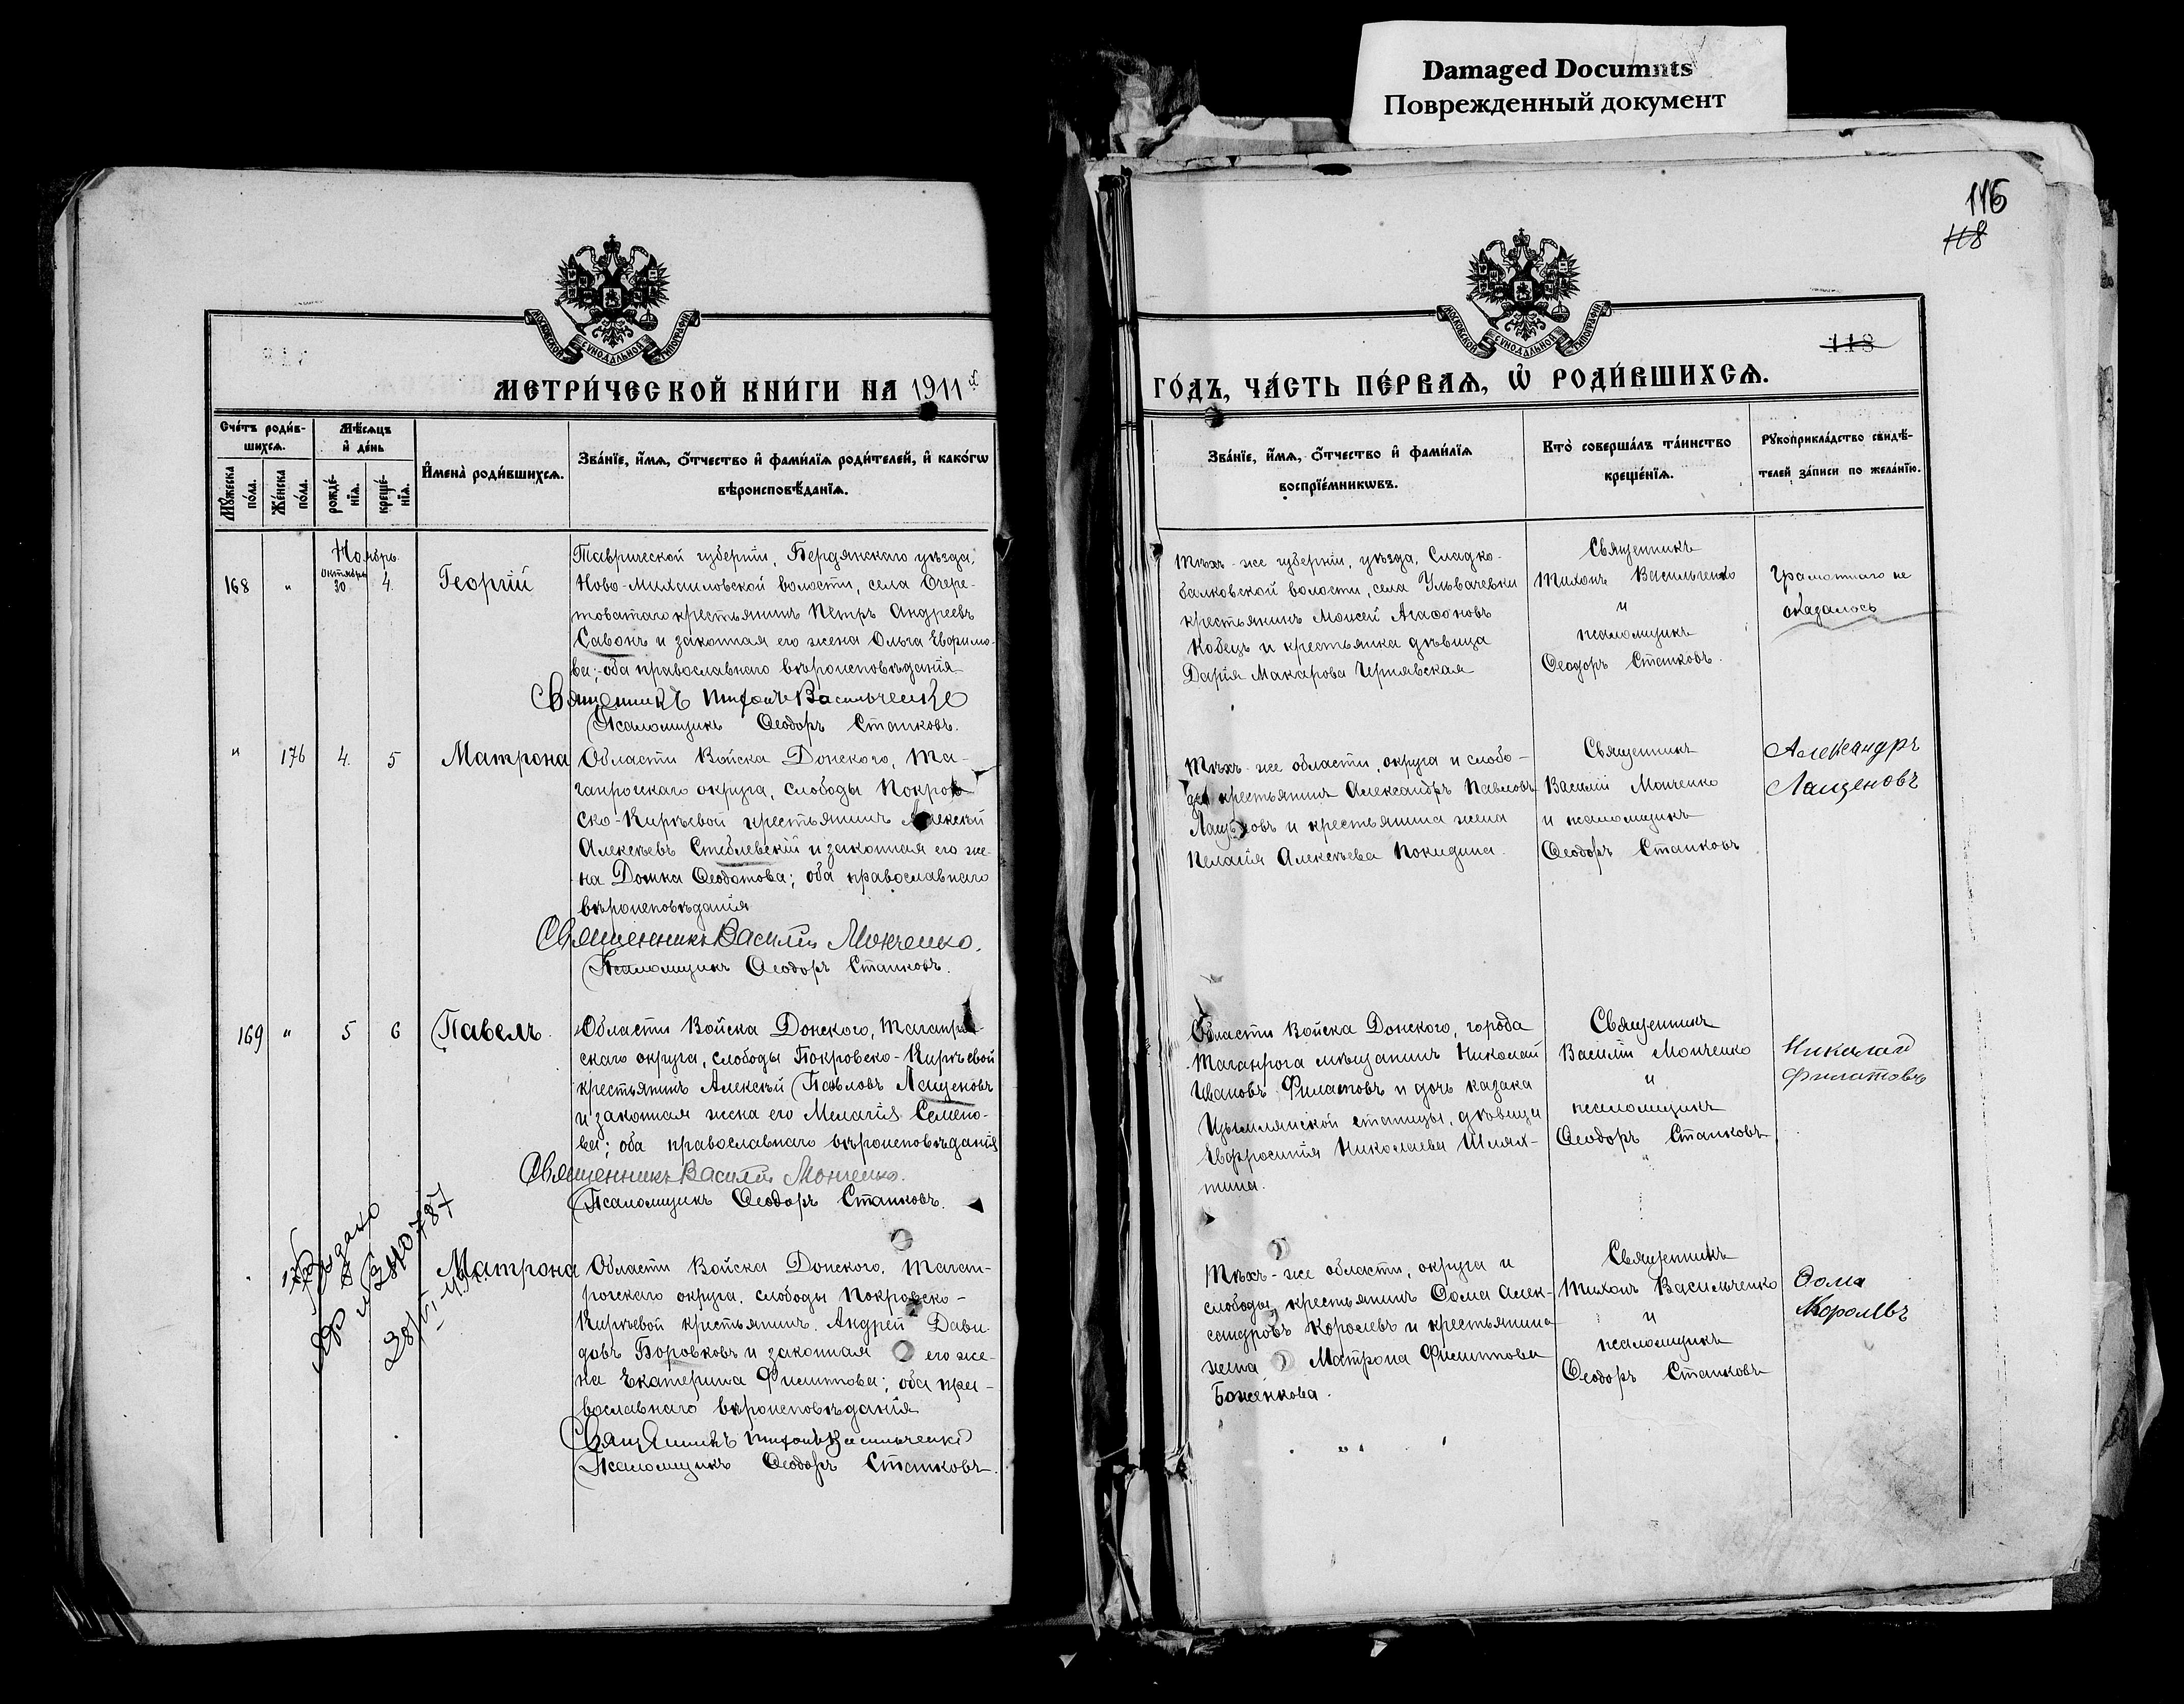 Damaged Documnts
Поврежденный документ
116
118
118
МОСКОВСКОЙ СѴНОДАЛЬНОЙ ТИПОГРАФІИ
МОСКОВСКОЙ СѴНОДАЛЬНОЙ ТИПОГРАФІИ
МЕТРИ́ЧЕСКОЙ КНИ́ГИ НА 1911 й
ГО́ДЪ, ЧА́СТЬ ПЕ́РВАѦ, Ѡ҆ РОДИ́ВШИХСѦ.
Сче́тъ роди́в-
шихсѧ.
Мѣ́сѧцъ
и҆ де́нь
Мꙋ́жеска
по́ла.
Же́нска
по́ла.
рожде́-
нїѧ.
креще́-
нїѧ.
И҆мена̀ роди́вшихсѧ.
Зва́нїе, и҆́мѧ, ѻ҆́тчество и҆ фами́лїѧ роди́телей, и҆ како́гѡ
вѣроисповѣ́данїѧ.
Зва́нїе, и҆́мѧ, ѻ҆́тчество и҆ фами́лїѧ
воспрїе́мникѡвъ.
Кто̀ соверша́лъ та́инство
креще́нїѧ.
Рꙋкоприкла́дство свидѣ́-
телей за́писи по жела́нїю.
Ноябрь.
Октябрь
168 " 30 4. Георгій
Таврической губерніи, Бердянскаго уѣзда,
Ново-Михаиловской волости, села Очере-
товатаго крестьянинъ Петръ Андреевъ
Савонъ и законная его жена Ольга Евфимо-
ва; оба православнаго вѣроисповѣданія
Священникъ Тихонъ Васильченко
Псаломщикъ Ѳеодоръ Станковъ.
Тѣхъ-же губерніи, уѣзда, Сладко-
балковской волости, села Ульвачевки
крестьянинъ Моисей Агаѳоновъ
Кобецъ и крестьянка дѣвица
Дарія Макарова Чернявская
Священникъ
Тихонъ Васильченко
и
псаломщикъ
Ѳеодоръ Станковъ.
Грамотнаго не
оказалось
" 176 4. 5 Матрона
Области Войска Донского, Та-
ганрогскаго округа, слободы Покров
ско-Кирѣевой крестьянинъ Алексѣй
Алексѣевъ Стеблевскій и законная его же-
на Домна Ѳеодотова; оба православнаго
вѣроисповѣданія
Священникъ Василій Монченко.
Псаломщикъ Ѳеодоръ Станковъ.
Тѣхъ-же области, округа и слобо-
ды крестьянинъ Александръ Павловъ
Лащеновъ и крестьянина жена
Пелагія Алексѣева Покидина.
Священникъ
Василій Монченко
и псаломщикъ
Ѳеодоръ Станковъ
Александръ
Лащеновъ
169 " 5 6 Павелъ.
Области Войска Донского, Таганрог-
скаго округа, слободы Покровско-Кирѣевой
крестьянинъ Алексѣй Павловъ Лащеновъ
и законная жена его Мелагія Семено-
ва; оба православнаго вѣроисповѣданія
Священникъ Василій Монченко.
Псаломщикъ Ѳеодоръ Станковъ.
Области Войска Донского, города
Таганрога мѣщанинъ Николай
Ивановъ Филатовъ и дочь казака
Цымлянской станицы, дѣвица
Евфросинія Николаева Шлях-
тина.
Священникъ
Василій Монченко
и
псаломщикъ
Ѳеодоръ Станковъ
Николай
Филатовъ
Матрона
Области Войска Донского, Таган-
рогскаго округа, слободы Покровско-
Кирѣевой крестьянинъ Андрей Дави-
довъ Боровковъ и законная его же-
на Екатерина Филиппова; оба пра-
вославнаго вѣроисповѣданія
Священникъ Тихонъ Васильченко
Псаломщикъ Ѳеодоръ Станковъ.
Тѣхъ-же области, округа и
слободы, крестьянинъ Ѳома Алек-
сандровъ Королевъ и крестьянина
жена Матрона Филиппова
Боженкова.
Священникъ
Тихонъ Васильченко
и
псаломщикъ
Ѳеодоръ Станковъ
Ѳома
Королевъ